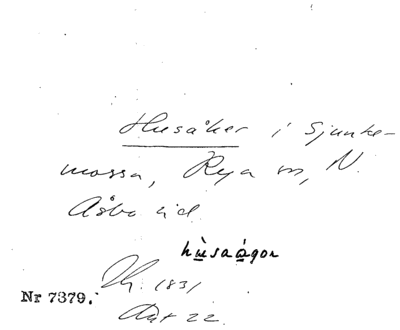 Husåker i Sjunke-
mossa, Rya sn, N.
Åsbo hd.
hùsaágor
Nr 7379.
1831
Akt 22.